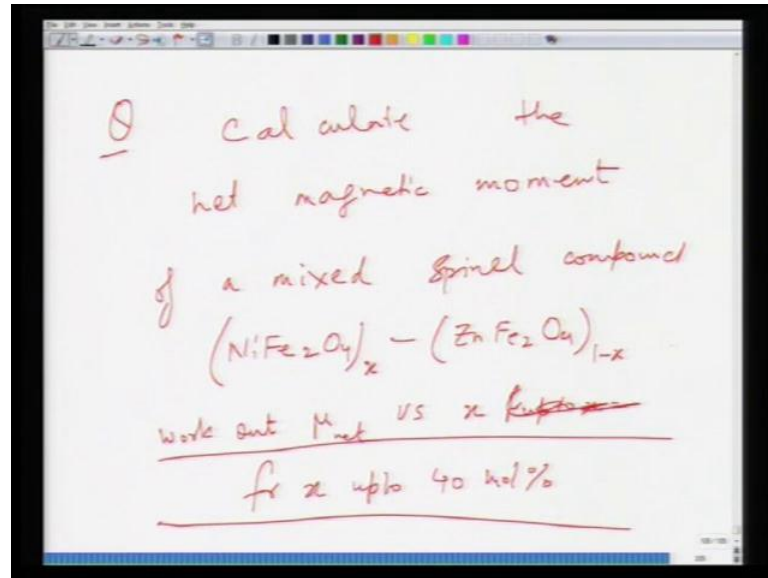 Q Calculate the
net magnetic moment
of a mixed spinel compound
(NiFe2O4)x - (ZnFe2O4)1-x
work out μnet vs x
for x upto 40 mol%